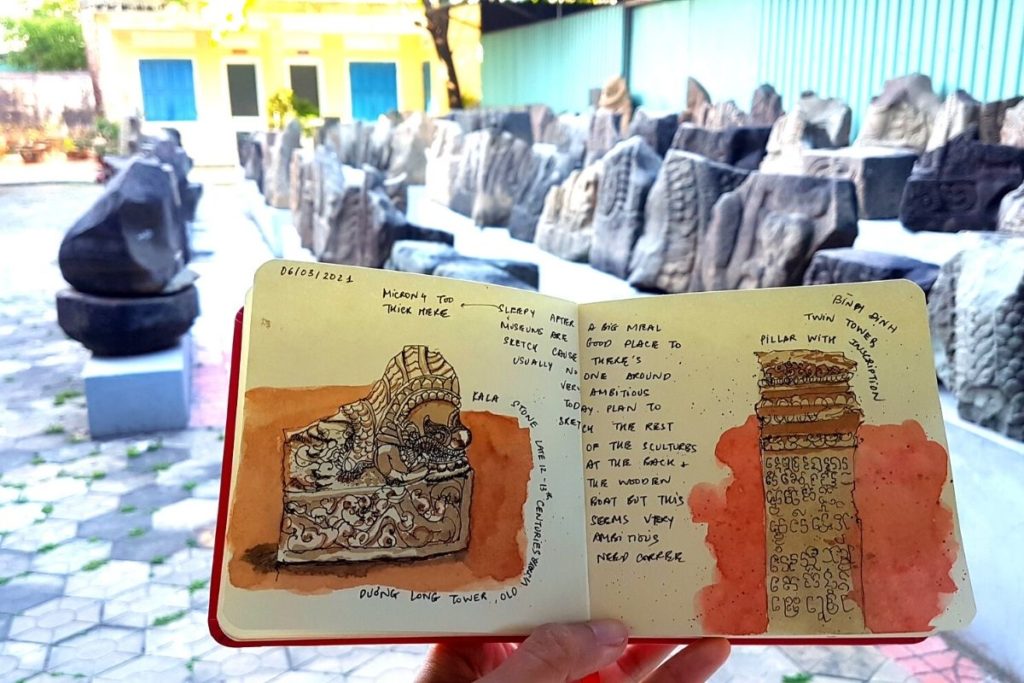 06/03/2021
MICRON 4 TOO
THICK HERE
SLEEPY AFTER A BIG MEAL
MUSEUMS ARE GOOD PLACE TO
SKETCH CAUSE THERE'S
USUALLY NO ONE AROUND
VERY AMBITIOUS
TODAY. PLAN TO
SKETCH THE REST
OF THE SCULTURES
AT THE BACK +
THE WOODEN
BOAT BUT THIS
SEEMS VERY
AMBITIOUS
NEED COFFEE
KALA STONE LATE 12-13th CENTURIES
DƯƠNG LONG TOWER, OLD
BÌNH ĐỊNH
TWIN TOWER
PILLAR WITH INSCRIPTION